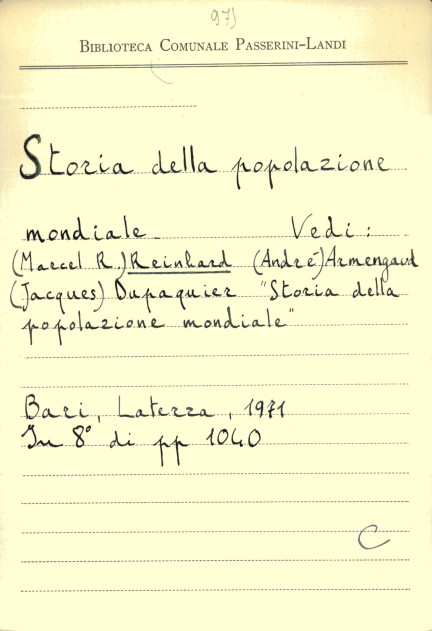 97)
BIBLIOTECA COMUNALE PASSERINI-LANDI
Storia della popolazione
mondiale. Vedi:
(Marcel R.) Reinhard (André) Armengaud
(Jacques) Dupaquier "Storia della
popolazione mondiale"
Bari, Laterza, 1971
In 8° di pp 1040
C